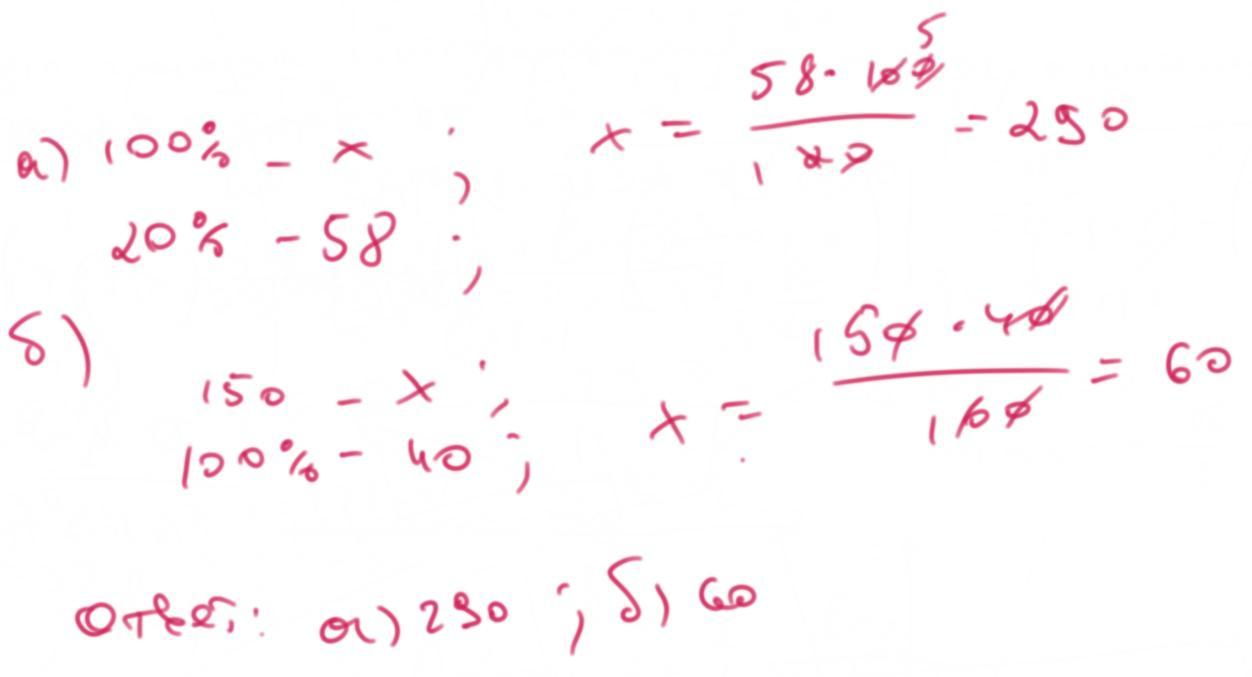 а) 100% - x ;
20% - 58 ;
x = 58 · 100 5 / 1 20 = 290
б)
150 - x ;
100% - 40 ;
x = 150 · 40 / 100 = 60
Ответ: а) 290 ; б) 60